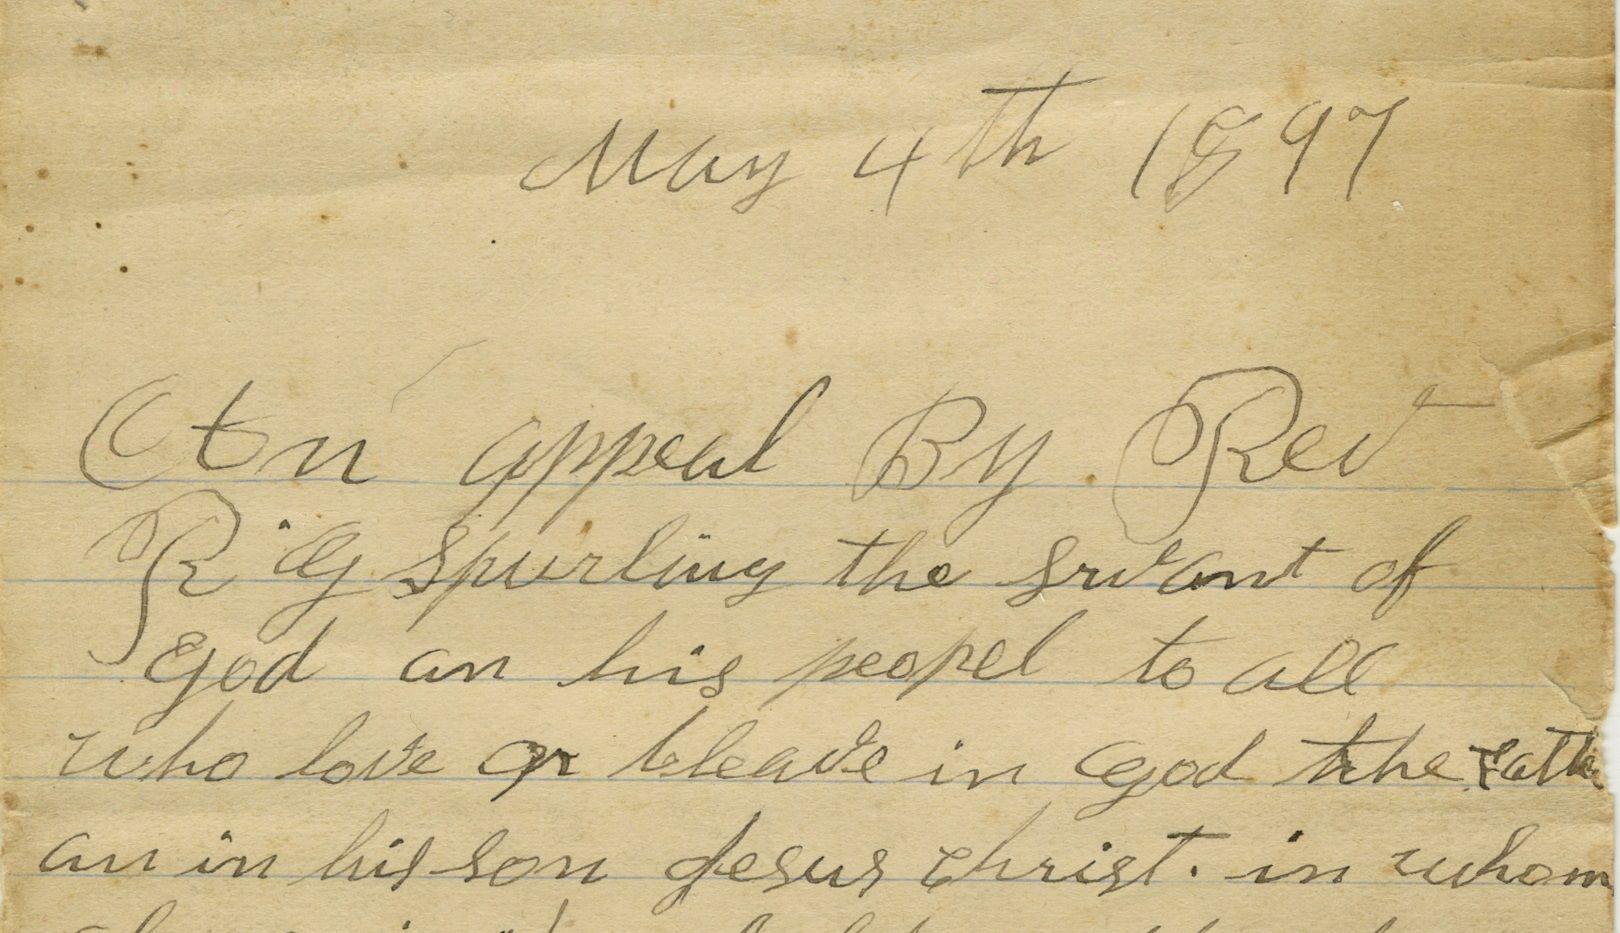 May 4th 1897
An appeal By Rev
R. G spurling the srvant of
God an his peopel to all
who love or beleave in God the Fathe
an in his son Jesus christ. in whom